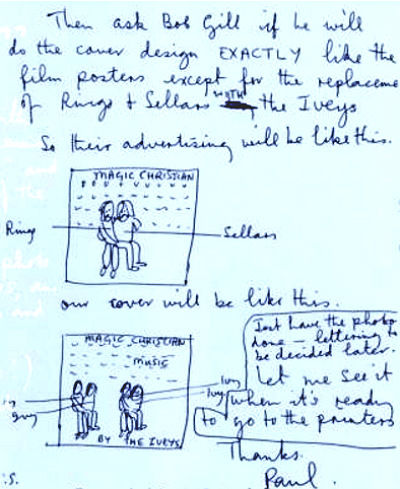 Then ask Bob Gill if he will
do the cover design EXACTLY like the
film posters except for the replaceme
of Ringo + Sellars WITH the Iveys
So their advertising will be like this.
MAGIC CHRISTIAN
Ringo
Sellars
our cover will be like this.
MAGIC CHRISTIAN
MUSIC
Ivey
Ivey
BY THE IVEYS
Just have the photo
done — lettering to
be decided later.
Let me see it
when it's ready
to go to the printers
Thanks.
Paul.